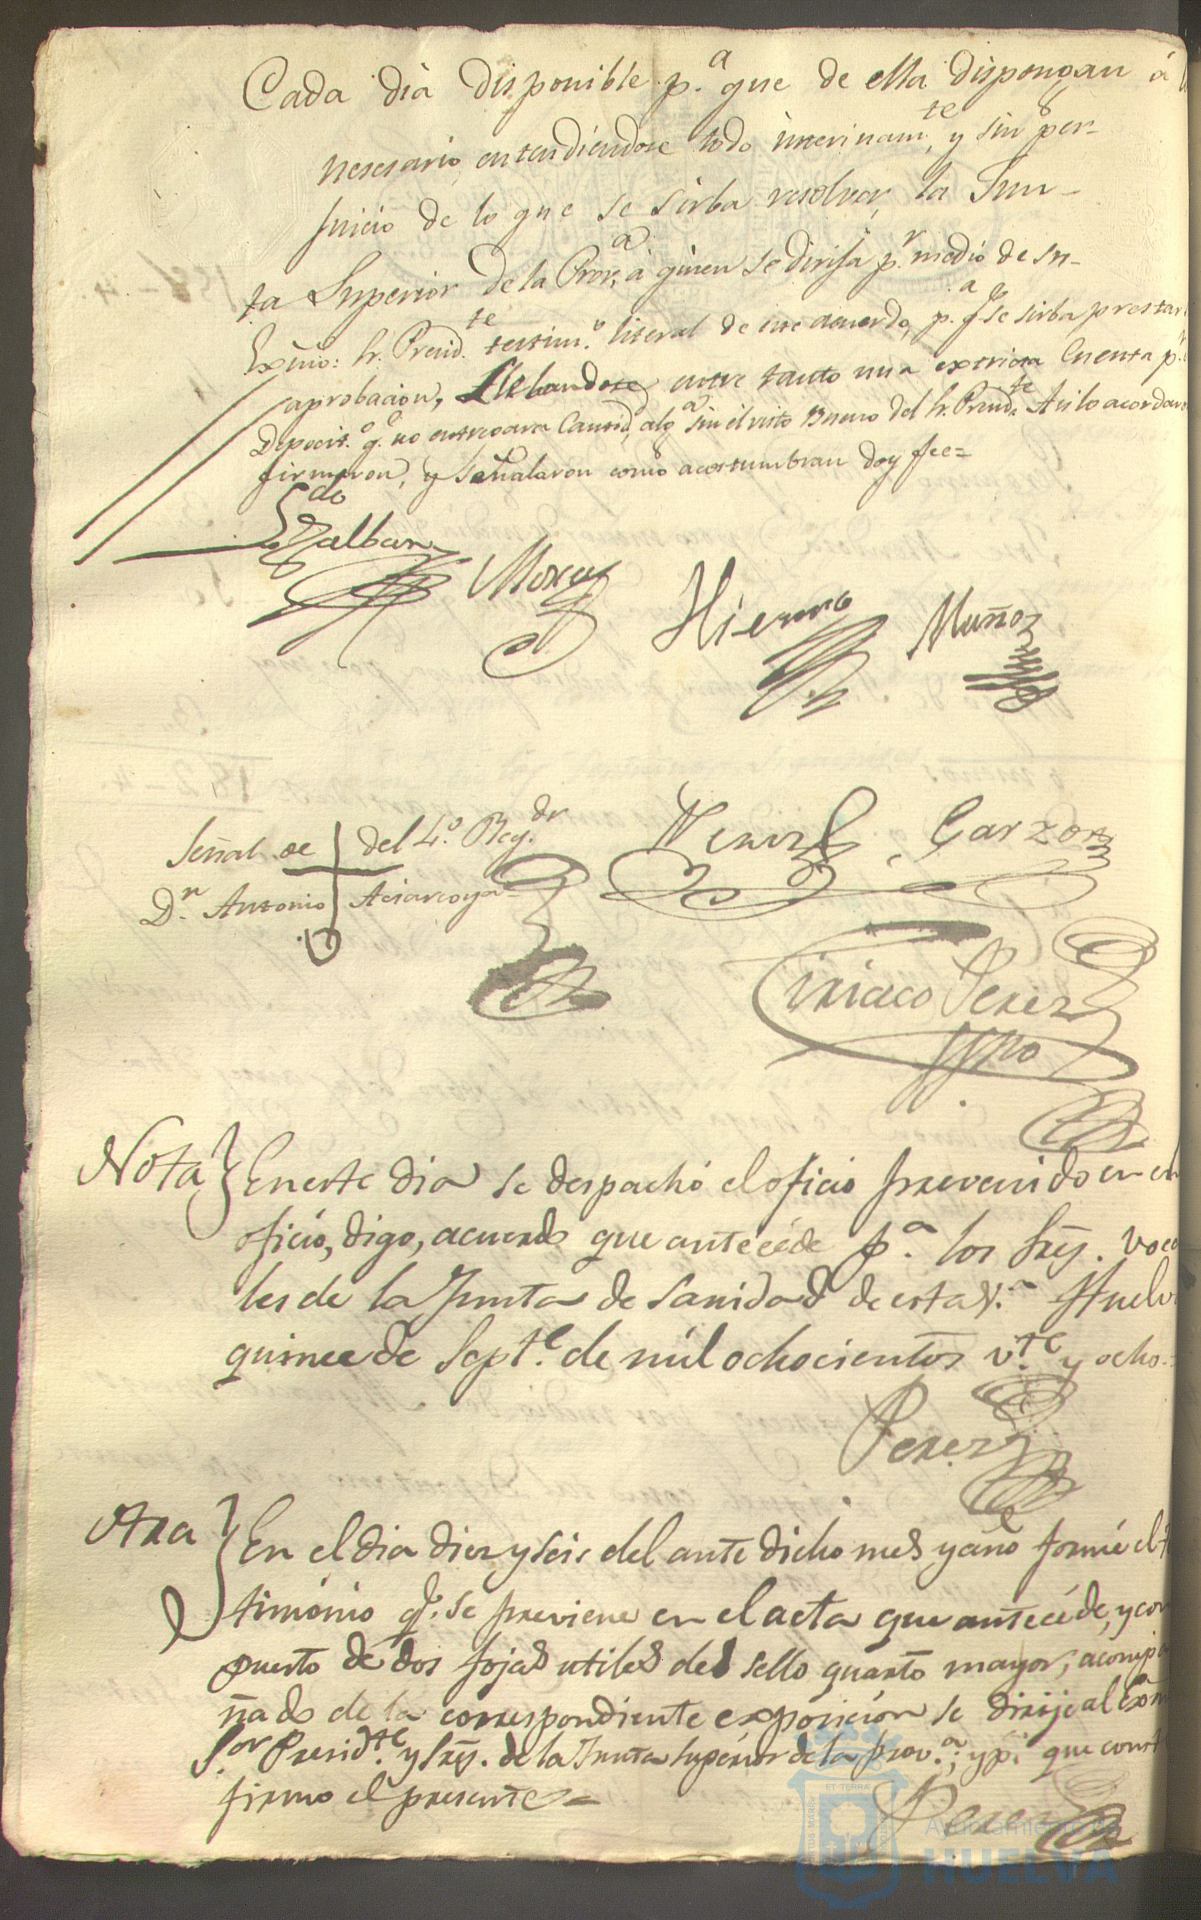 Cada dia disponible p.a que de ella dispongan á
nesesario, entendiendose todo interinam.te, y sin per-
juicio de lo que se sirba resolver, la Jun-
ta Superior de la Prov.a á quien se dirija p.r medio de su
Exmo: Sr. Presid.te testim.o literal de este acuerdo, p.a q.e se sirba prestar
aprobacion, llebandose entre tanto una extricta Cuenta p.r
Deposit.o q.e no entregara Cantid. alg.a sin el visto Bueno del Sr. Presid.te Asi lo acordaron
firmaron, y señalaron como acostumbran doy fee=
Mora
Hierro
Muñoz
Señal de del 4.o Reg.dr
D.n Antonio
Garzon
Ciriaco Perez
Nota} En este dia se despachó el oficio prevenido en el
oficio, digo, acuerdo que antecéde p.a los Sres. Voca
les de la Junta de Sanidad de esta V.a Huelva
quince de Sept.e de mil ochocientos v.te y ocho.
Perez
Otra} En el dia diez y seis del ante dicho mes y año formé el
timónio q.e se previene en el acta que antecéde, y con
puesto de dos fojas utiles del sello quarto mayor, acompa
ñado de la correspondiente exposicion se dirije al Exm
S.or Presid.te y Sres. de la Junta Superior de la prov.a; y p.a que const
firmo el presente=
Perez
ET TERRÆ
Ayuntamiento de
HUELVA